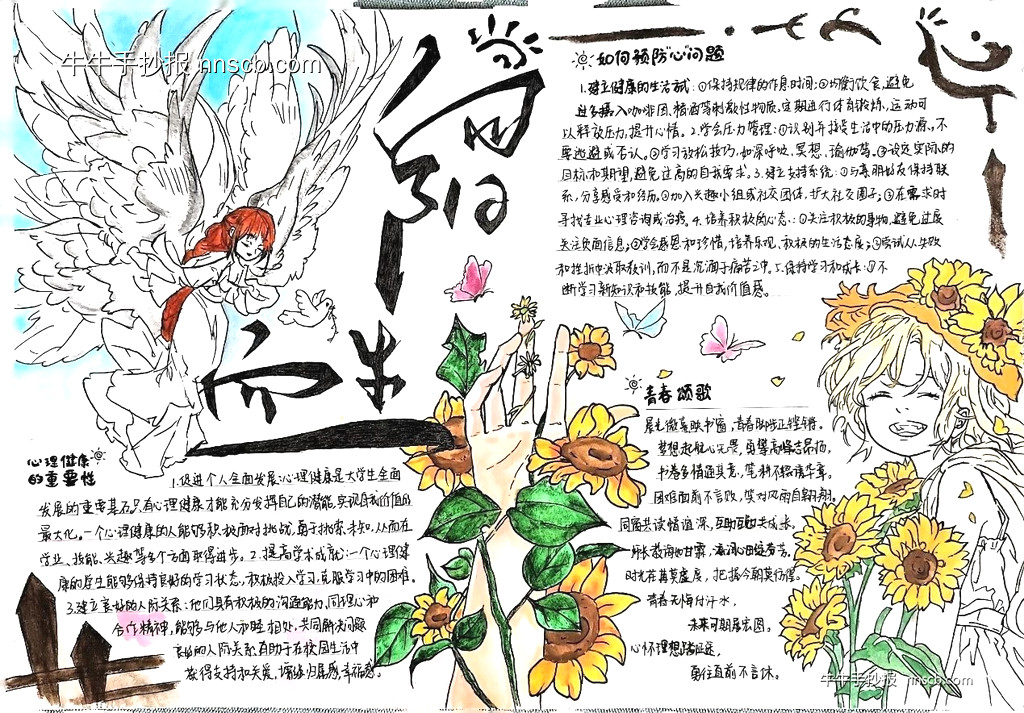 牛牛手抄报 nnscb.com
向阳而生
如何预防“心”问题
1.建立健康的生活方式:①保持规律的作息时间;②均衡饮食,避免
过多摄入咖啡因、糖、酒等刺激性物质,定期进行体育锻炼,运动可
以释放压力,提升心情。2.学会压力管理:①识别并接受生活中的压力源,不
要逃避或否认。②学习放松技巧,如深呼吸,冥想,瑜伽等。③设定实际的
目标和期望,避免过高的自我要求。3.建立支持系统:①与亲朋好友保持联
系,分享感受和经历。②加入兴趣小组或社交团体,扩大社交圈子;③在需求时
寻找专业心理咨询或治疗。4.培养积极的心态:①关注积极的事物,避免过度
关注负面信息;②学会感恩和珍惜,培养乐观、积极的生活态度;③尝试从失败
和挫折中汲取教训,而不是沉湎于痛苦之中。5.保持学习和成长:①不
断学习新知识和技能,提升自我价值感。
青春颂歌
晨光微熹映书窗,青春脚步正铿锵。
梦想起航心无畏,勇攀高峰志昂扬,
书卷多情道真意,笔耕不辍谱华章。
困难面前不言败,笑对风雨自翱翔。
同窗共读情谊深,互助互勉共成长,
师长教诲如甘霖,
时光荏苒莫虚度,把握今朝莫彷徨。
青春无悔付汗水,
未来可期展宏图。
心怀理想踏征途,
勇往直前不言休。
心理健康
的重要性
1.促进个人全面发展:心理健康是大学生全面
发展的重要基石,只有心理健康,才能充分发挥自己的潜能,实现自我价值的
最大化。一个心理健康的人能够积极面对挑战,勇于探索未知,从而在
学业、技能、兴趣等各个方面取得进步。2.提高学术成就:一个心理健
康的学生能够保持良好的学习状态,积极投入学习,克服学习中的困难。
3.建立良好的人际关系:他们具有积极的沟通能力,同理心和
合作精神,能够与他人和睦相处,共同解决问题
良好的人际关系有助于在校园生活中
获得支持和关爱,增强归属感,幸福感。
牛牛手抄报 nnscb.com